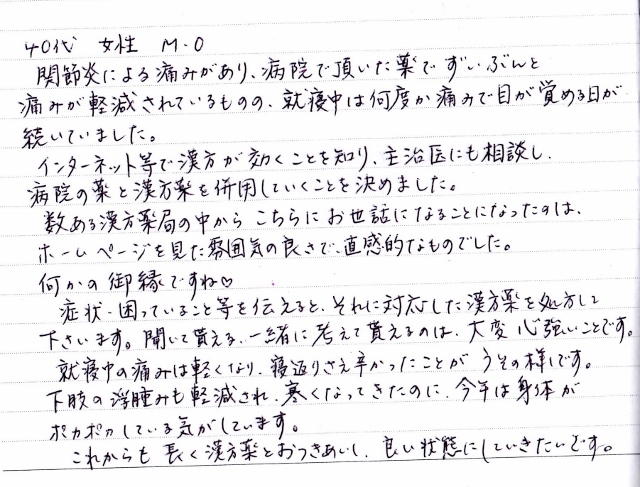 40代 女性 M.O
関節炎による痛みがあり、病院で頂いた薬でずいぶんと
痛みが軽減されているものの、就寝中は何度か痛みで目が覚める日が
続いていました。
インターネット等で漢方が効くことを知り、主治医にも相談し、
病院の薬と漢方薬を併用していくことを決めました。
数ある漢方薬局の中からこちらにお世話になることになったのは、
ホームページを見た雰囲気の良さで、直感的なものでした。
何かの御縁ですね♡
症状・困っていること等を伝えると、それに対応した漢方薬を処方して
下さいます。聞いて貰える、一緒に考えて貰えるのは、大変心強いことです。
就寝中の痛みは軽くなり、寝返りさえ辛かったことがうその様です。
下肢の浮腫みも軽減され、寒くなってきたのに、今年は身体が
ポカポカしている気がしています。
これからも長く漢方薬とおつきあいし、良い状態にしていきたいです。